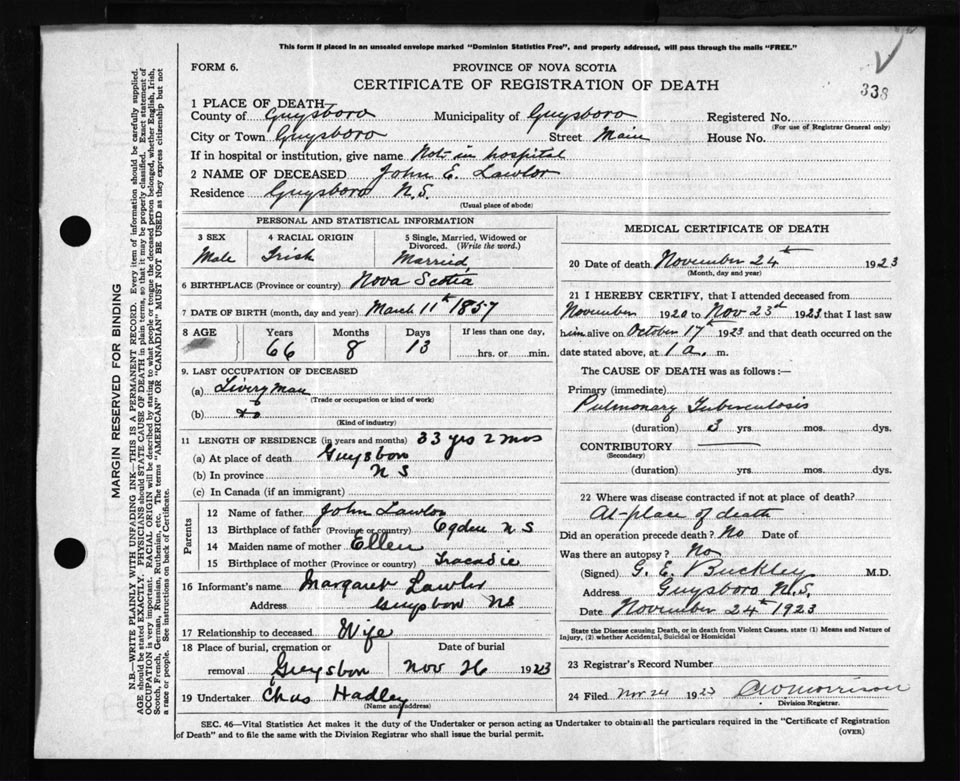 This form if placed in an unsealed envelope marked "Dominion Statistics Free", and properly addressed, will pass through the mails "FREE."
FORM 6.
PROVINCE OF NOVA SCOTIA
CERTIFICATE OF REGISTRATION OF DEATH
338
1 PLACE OF DEATH
County of Guysboro Municipality of Guysboro Registered No.
(For use of Registrar General only)
City or Town Guysboro Street Main House No.
If in hospital or institution, give name Not in hospital
2 NAME OF DECEASED John E. Lawlor
Residence Guysboro N.S.
(Usual place of abode)
PERSONAL AND STATISTICAL INFORMATION
3 SEX 4 RACIAL ORIGIN 5 Single, Married, Widowed or Divorced. (Write the word.)
Male Irish Married
6 BIRTHPLACE (Province or country) Nova Scotia
7 DATE OF BIRTH (month, day and year) March 11th 1857
8 AGE Years Months Days If less than one day,
66 8 13 hrs. or min.
9. LAST OCCUPATION OF DECEASED
(a) Livery Man
(Trade or occupation or kind of work)
(b) do
(Kind of industry)
11 LENGTH OF RESIDENCE (in years and months) 33 yrs 2 mos
(a) At place of death Guysboro
(b) In province N S
(c) In Canada (if an immigrant)
Parents
12 Name of father John Lawlor
13 Birthplace of father (Province or country) Ogden N S
14 Maiden name of mother Ellen
15 Birthplace of mother (Province or country) Tracadie
16 Informant's name Margaret Lawlor
Address Guysboro NS
17 Relationship to deceased Wife
18 Place of burial, cremation or Date of burial
removal Guysboro Nov 26 1923
19 Undertaker Chas Hadley
(Name and address)
MEDICAL CERTIFICATE OF DEATH
20 Date of death November 24th 1923
(Month, day and year)
21 I HEREBY CERTIFY, that I attended deceased from
November 1920 to Nov 23rd 1923 that I last saw
him alive on October 17th 1923 and that death occurred on the
date stated above, at 1 a. m.
The CAUSE OF DEATH was as follows:—
Primary (immediate)
Pulmonary Tuberculosis
(duration) 3 yrs. mos. dys.
CONTRIBUTORY
(Secondary)
(duration) yrs. mos. dys.
22 Where was disease contracted if not at place of death?
At place of death
Did an operation precede death? No Date of
Was there an autopsy? No
(Signed) G. E. Buckley M.D.
Address Guysboro N.S.
Date November 24th 1923
State the Disease causing Death, or in death from Violent Causes, state (1) Means and Nature of
Injury, (2) whether Accidental, Suicidal or Homicidal
23 Registrar's Record Number
24 Filed Nov 24 1923 Morrison
Division Registrar.
SEC. 46—Vital Statistics Act makes it the duty of the Undertaker or person acting as Undertaker to obtain all the particulars required in the "Certificate of Registration
of Death" and to file the same with the Division Registrar who shall issue the burial permit.
(OVER)
MARGIN RESERVED FOR BINDING
N.B.—WRITE PLAINLY WITH UNFADING INK—THIS IS A PERMANENT RECORD. Every item of information should be carefully supplied.
AGE should be stated EXACTLY. PHYSICIANS should STATE CAUSE OF DEATH in plain terms, so that it may be properly classified. Exact statement of
OCCUPATION is very important. RACIAL ORIGIN will be described by stating to what people or tongue the deceased person belonged, whether English, Irish,
Scotch, French, German, Russian, Ruthenian, etc. The terms "AMERICAN" OR "CANADIAN" MUST NOT BE USED as they express citizenship but not
a race or people. See instructions on back of Certificate.